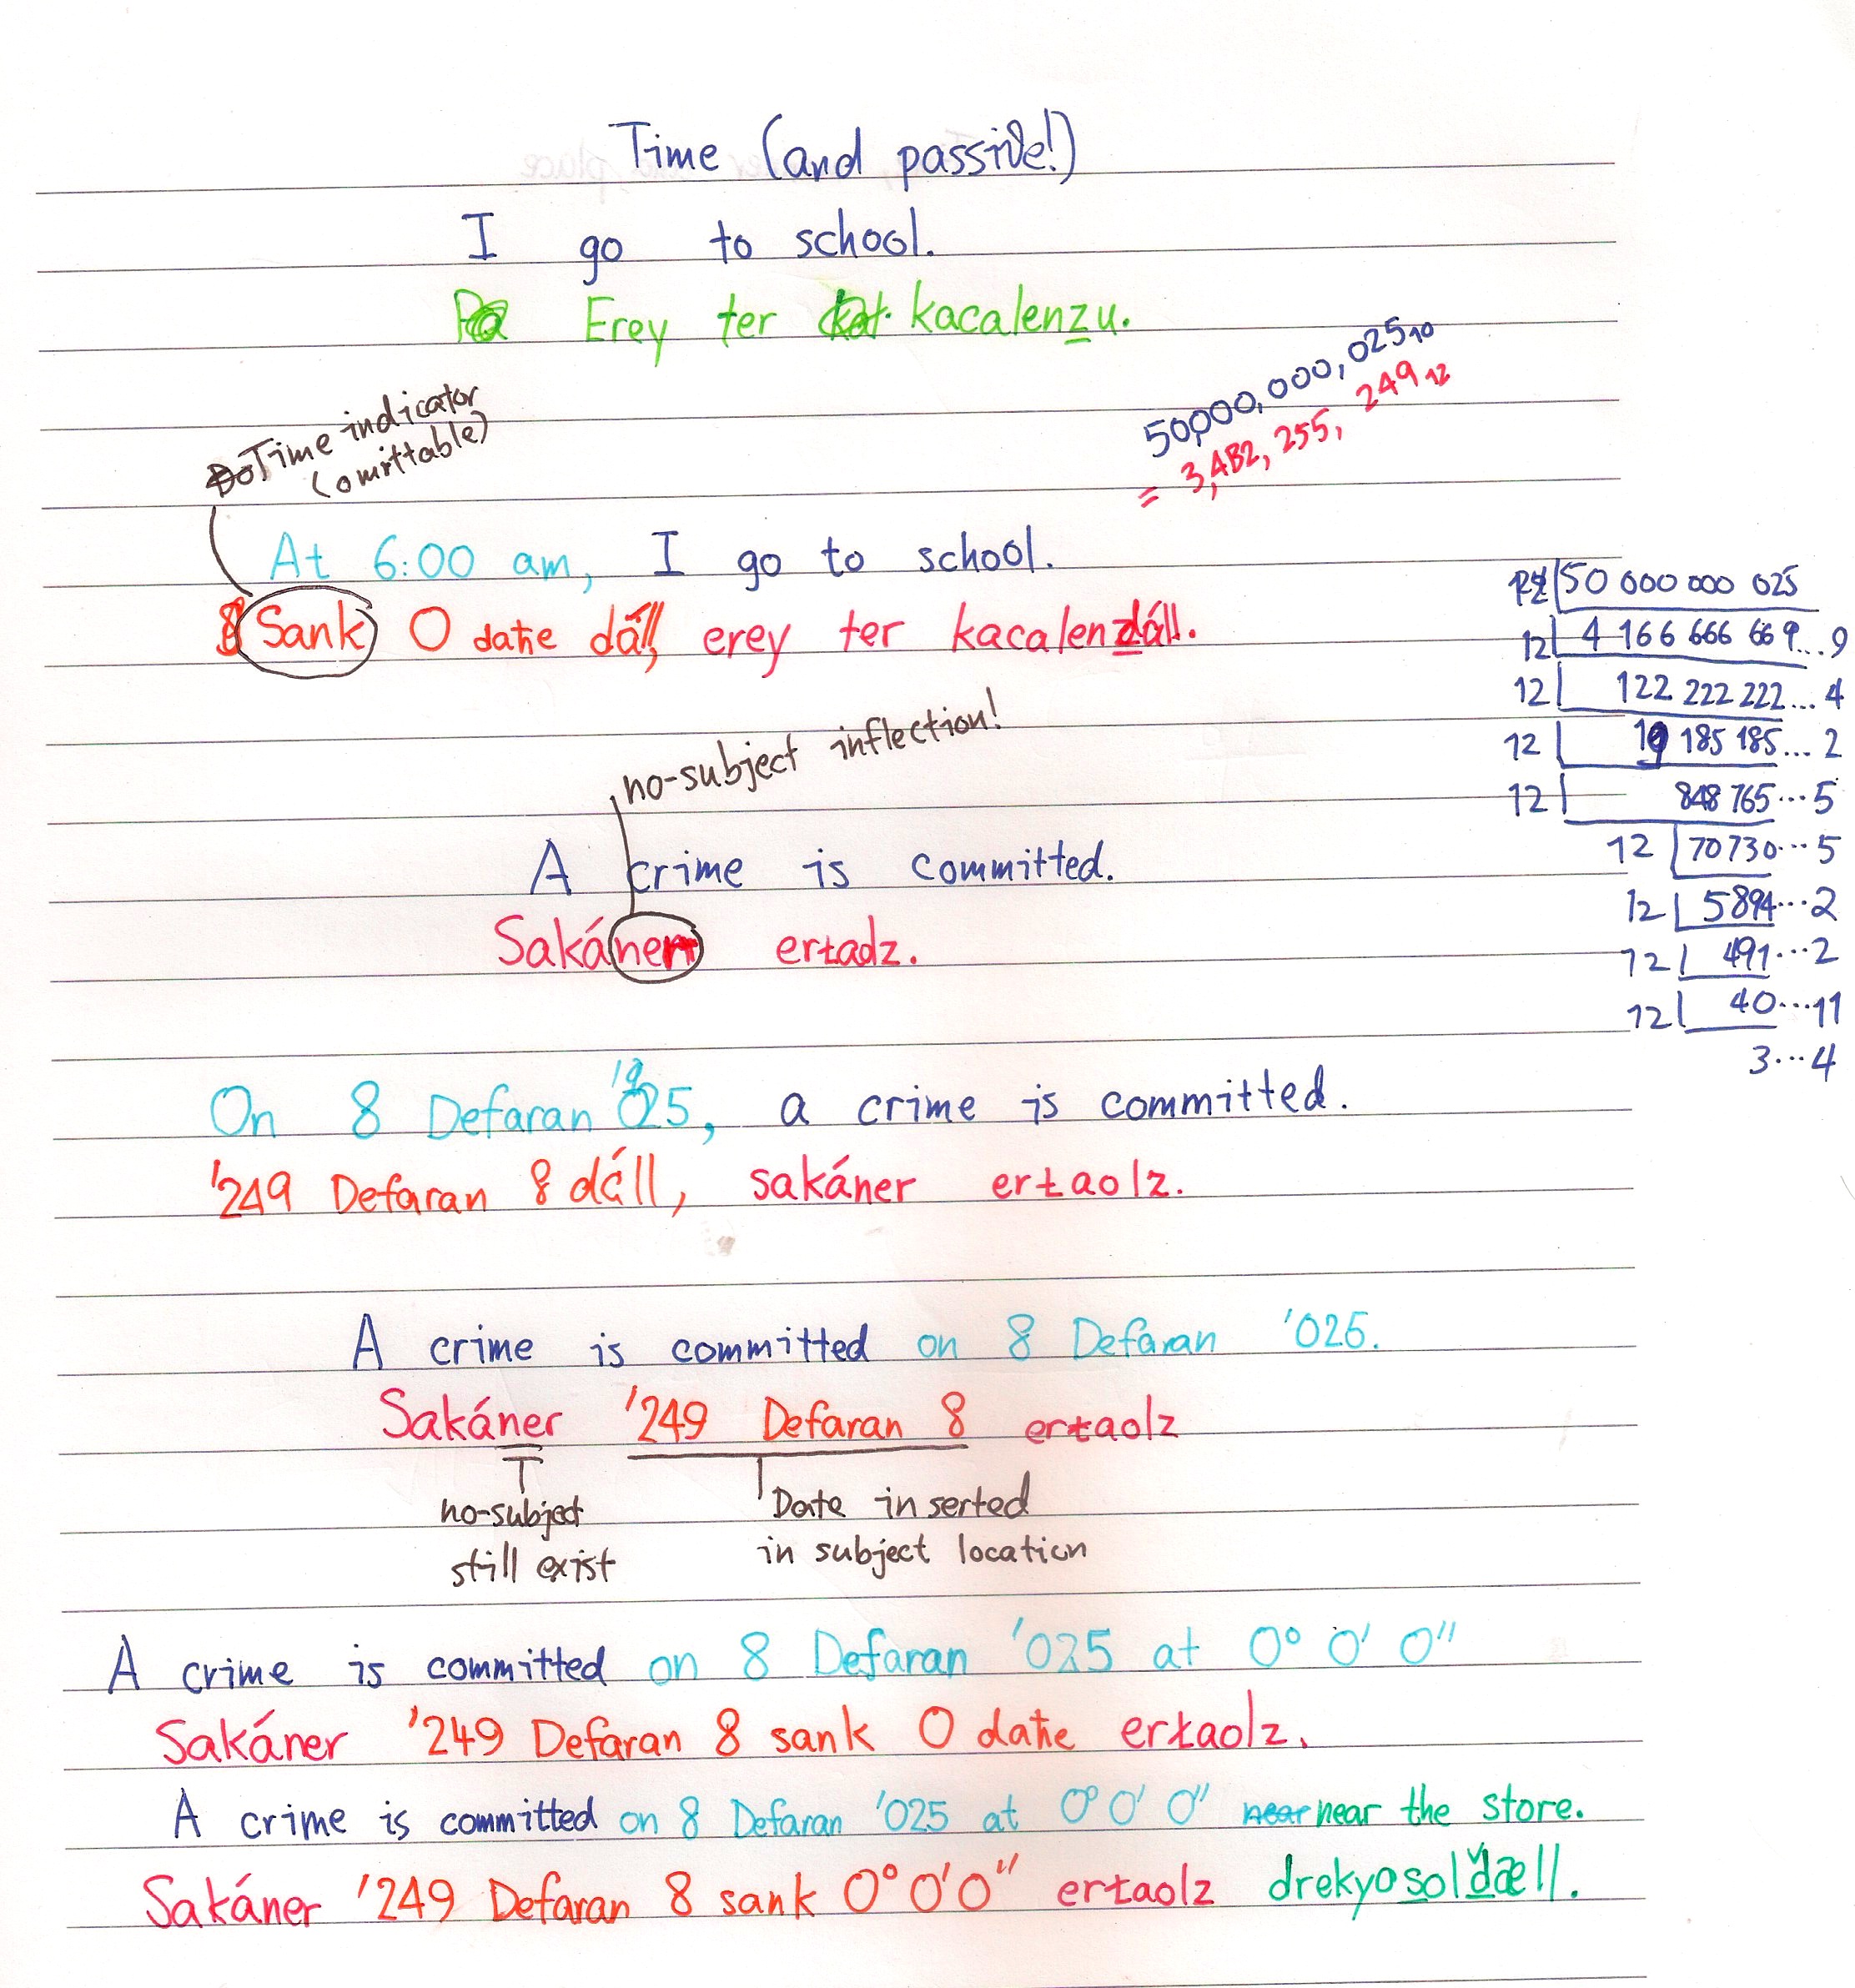 Time (and passive!)
I go to school.
Erey ter kacalenzu.
50,000,000,025₁₀
= 3,4B2,255,249₁₂
Time indicator
(omittable)
At 6:00 am, I go to school.
Sank 0 daħe dáll, erey ter kacalendáll.
no-subject inflection!
A crime is committed.
Sakáner ertadz.
On 8 Defaran '025, a crime is committed.
'249 Defaran 8 dáll, sakáner ertaolz.
A crime is committed on 8 Defaran '025.
Sakáner '249 Defaran 8 ertaolz
no-subject
still exist
Date inserted
in subject location
A crime is committed on 8 Defaran '025 at 0° 0' 0"
Sakáner '249 Defaran 8 sank 0 daħe ertaolz.
A crime is committed on 8 Defaran '025 at 0° 0' 0" near near the store.
Sakáner '249 Defaran 8 sank 0° 0' 0" ertaolz drekyosolďæll.
12 50 000 000 025
12 4 166 666 669...9
12 122 222 222...4
12 19 185 185...2
12 848 765...5
12 70730...5
12 5894...2
12 491...2
12 40...11
3...4